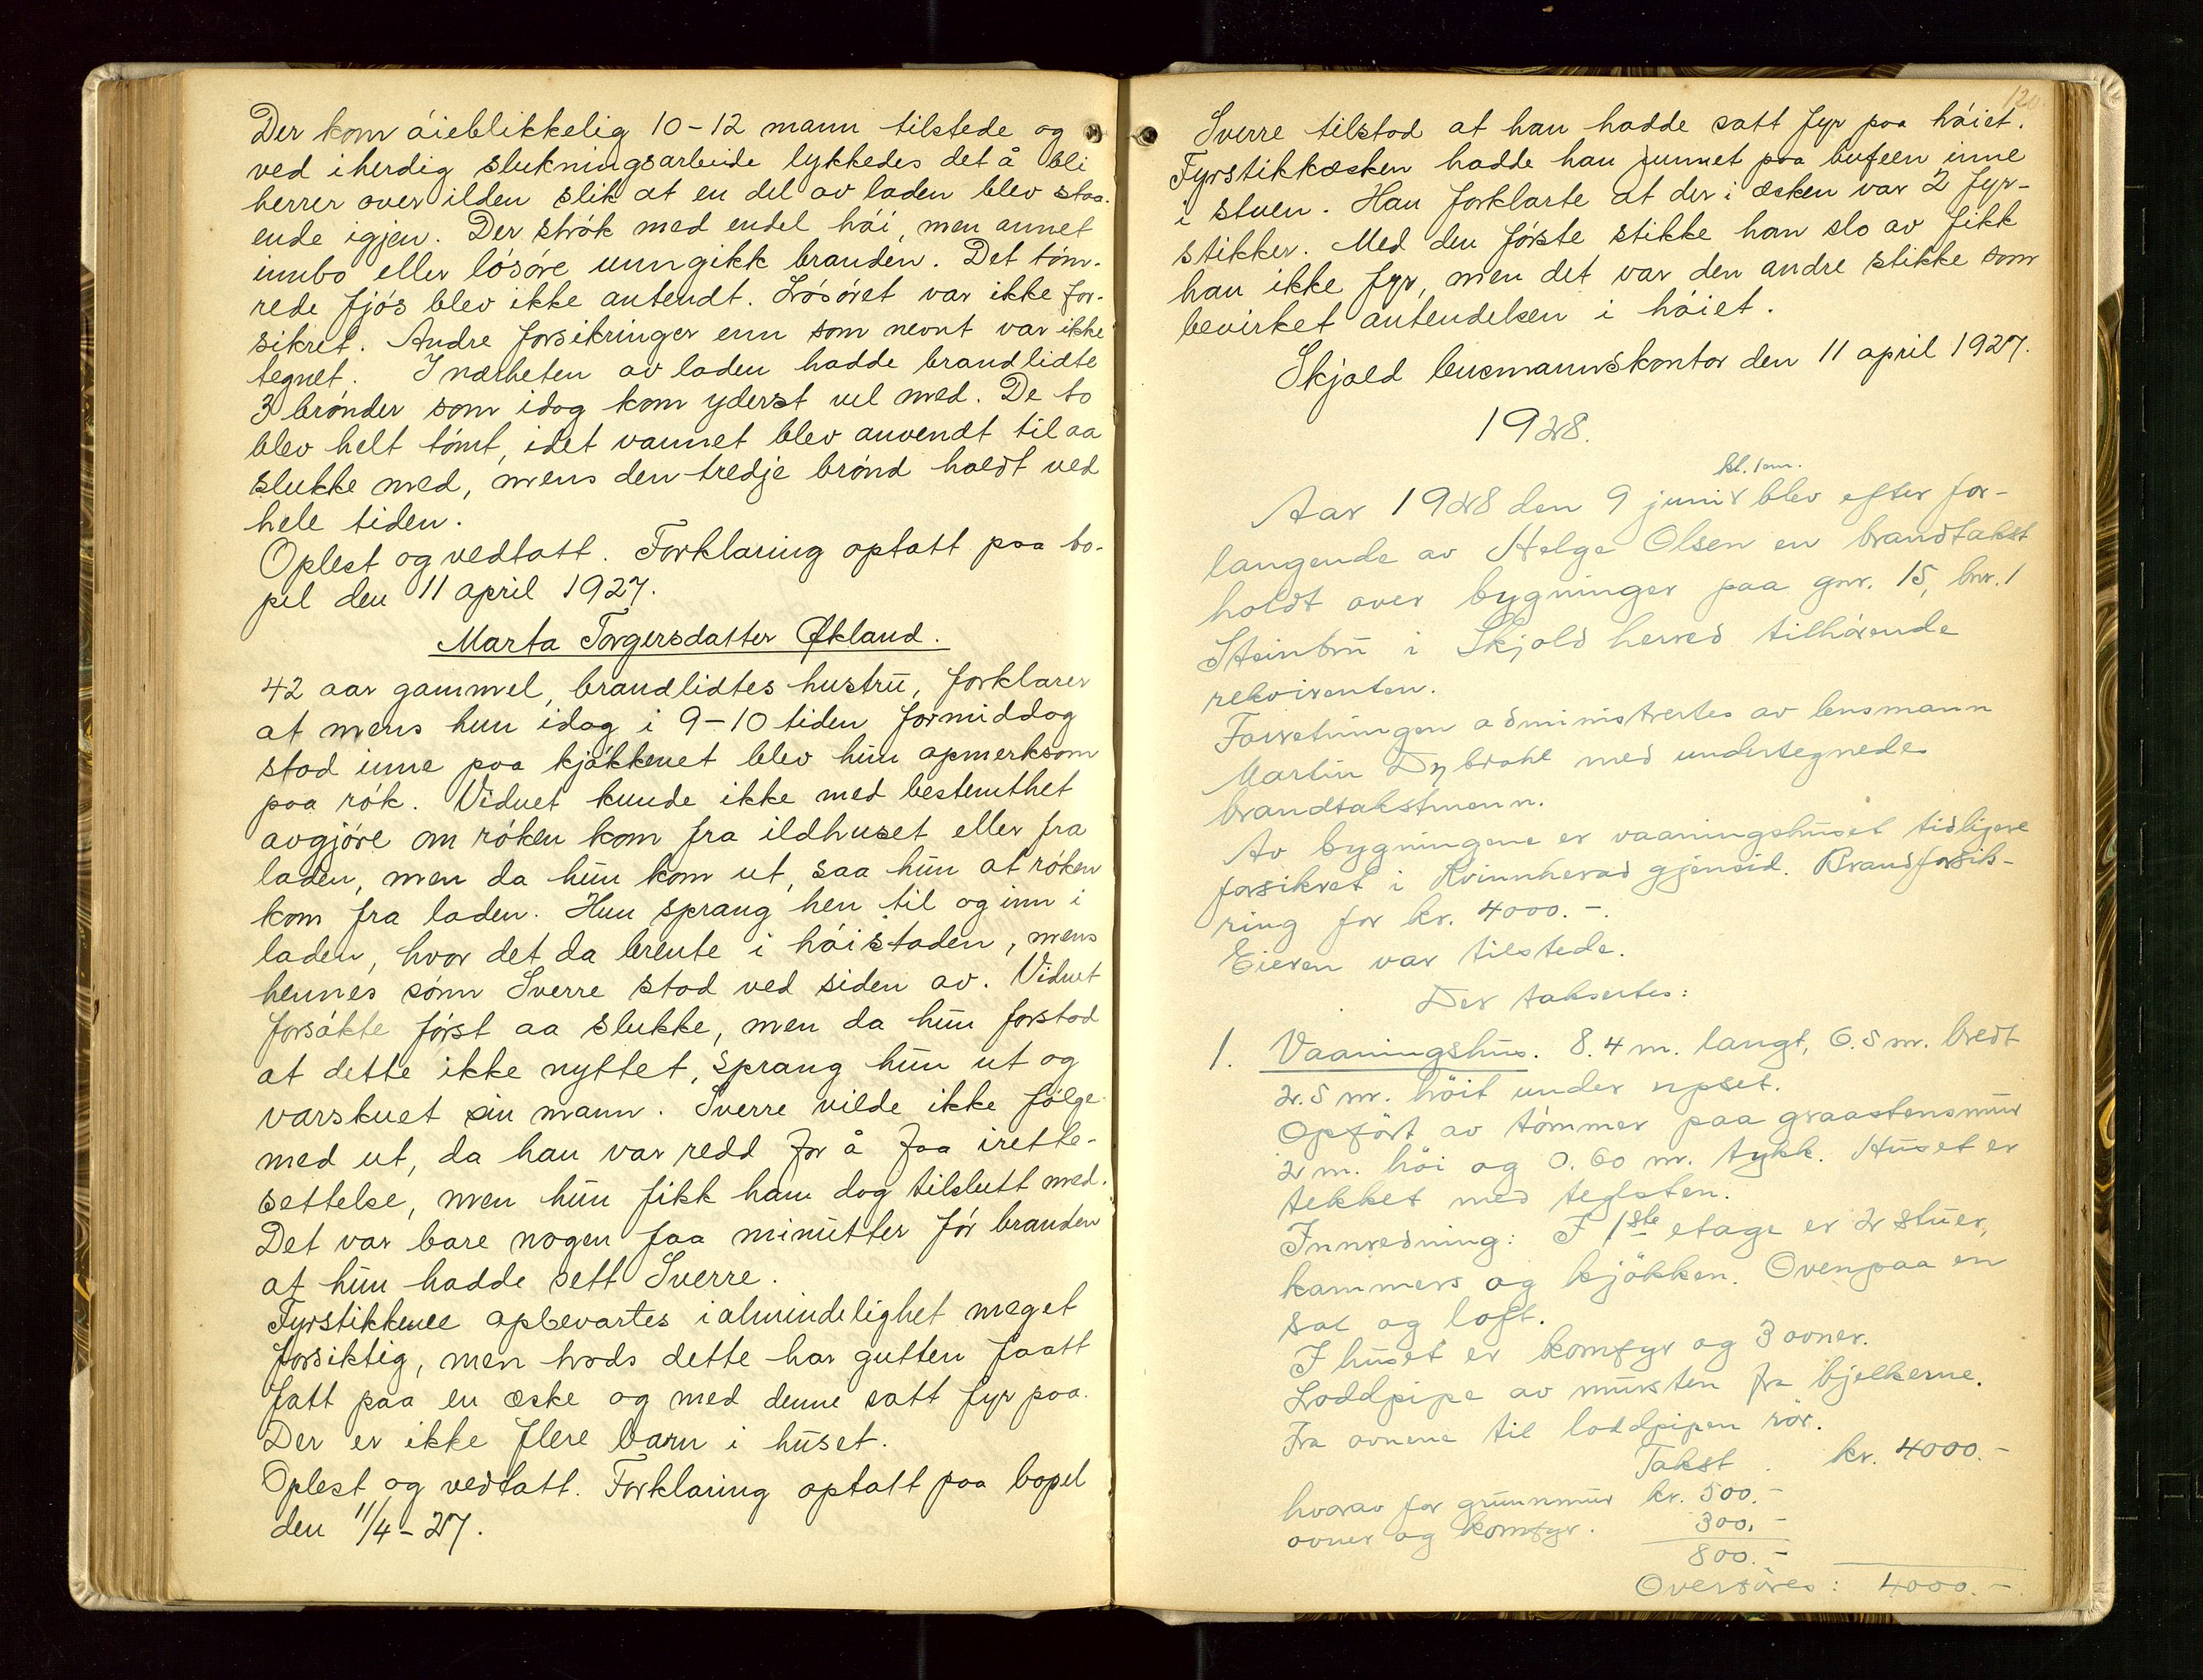 Der kom øieblikkelig 10-12 mann tilstede og
ved iherdig slukningsarbeide lykkedes det å bli
herrer over ilden slik at en del av laden blev staa-
ende igjen. Der strøk med endel høi, men annet
innbo eller løsøre unngikk branden. Det tøm-
rede fjøs blev ikke antendt. Løsøret var ikke for-
sikret. Andre forsikringer enn som nevnt var ikke
tegnet. I nærheten av laden hadde brandlidte
3 brønder som idag kom yderst vel med. De to
blev helt tømt, idet vannet blev anvendt til aa
slukke med, mens den tredje brønd holdt ved
hele tiden.
Oplest og vedtatt. Forklaring optatt paa bo-
pel den 11 april 1927.
Marta Torgersdatter Økland.
42 aar gammel, brandlidtes hustru, forklarer
at mens hun idag i 9-10 tiden formiddag
stod inne paa kjøkkenet blev hun opmerksom
paa røk. Vidnet kunde ikke med bestemthet
avgjøre om røken kom fra ildhuset eller fra
laden, men da hun kom ut, saa hun at røken
kom fra laden. Hun sprang hen til og inn i
laden, hvor det da brente i høistaden, mens
hennes sønn Sverre stod ved siden av. Vidnet
forsøkte først aa slukke, men da hun forstod
at dette ikke nyttet, sprang hun ut og
varskuet sin mann. Sverre vilde ikke følge
med ut, da han var redd for å faa irette-
settelse, men hun fikk ham dog tilslutt med.
Det var bare nogen faa minutter før branden
at hun hadde sett Sverre.
Fyrstikkene opbevartes i almindelighet meget
forsiktig, men trods dette har gutten faatt
fatt paa en æske og med denne satt fyr paa.
Der er ikke flere barn i huset.
Oplest og vedtatt. Forklaring optatt paa bopel
den 11/4-27.
120
Sverre tilstod at han hadde satt fyr paa høiet.
Fyrstikkæsken hadde han funnet paa bufeen inne
i stuen. Han forklarte at der i æsken var 2 fyr-
stikker. Med den første stikke han slo av fikk
han ikke fyr, men det var den andre stikke som
bevirket antendelsen i høiet.
Skjold lensmannskontor den 11 april 1927.
1928.
kl. 1 em.
Aar 1928 den 9 juni blev efter for-
langende av Helge Olsen en brandtakst
holdt over bygninger paa gnr. 15, bnr. 1
Steinbru i Skjold herred tilhørende
rekvirenten.
Forretningen administrertes av lensmann
Martin Dybdahl med undertegnede
brandtakstmenn.
Av bygningene er vaaningshuset tidligere
forsikret i Kvinnherad gjensid. Brandforsik-
ring for kr. 4000.-.
Eieren var tilstede.
Der taksertes:
1. Vaaningshus. 8.4 m. langt, 6.5 m. bredt
2.5 m. höit under upset.
Opført av tømmer paa graastensmur
2 m. höi og 0.60 m. tykk. Huset er
tekket med teglsten.
Innredning: I 1ste etage er 2 stuer,
kammers og kjökken. Ovenpaa en
sal og loft.
I huset er komfyr og 3 ovner.
Loddpipe av mursten fra bjelkerne.
Fra ovnene til loddpipen rör.
Takst . kr. 4000.-
hvorav for grunnmur kr. 500.-
ovner og komfyr. 300.-
800.-
Overføres: 4000.-